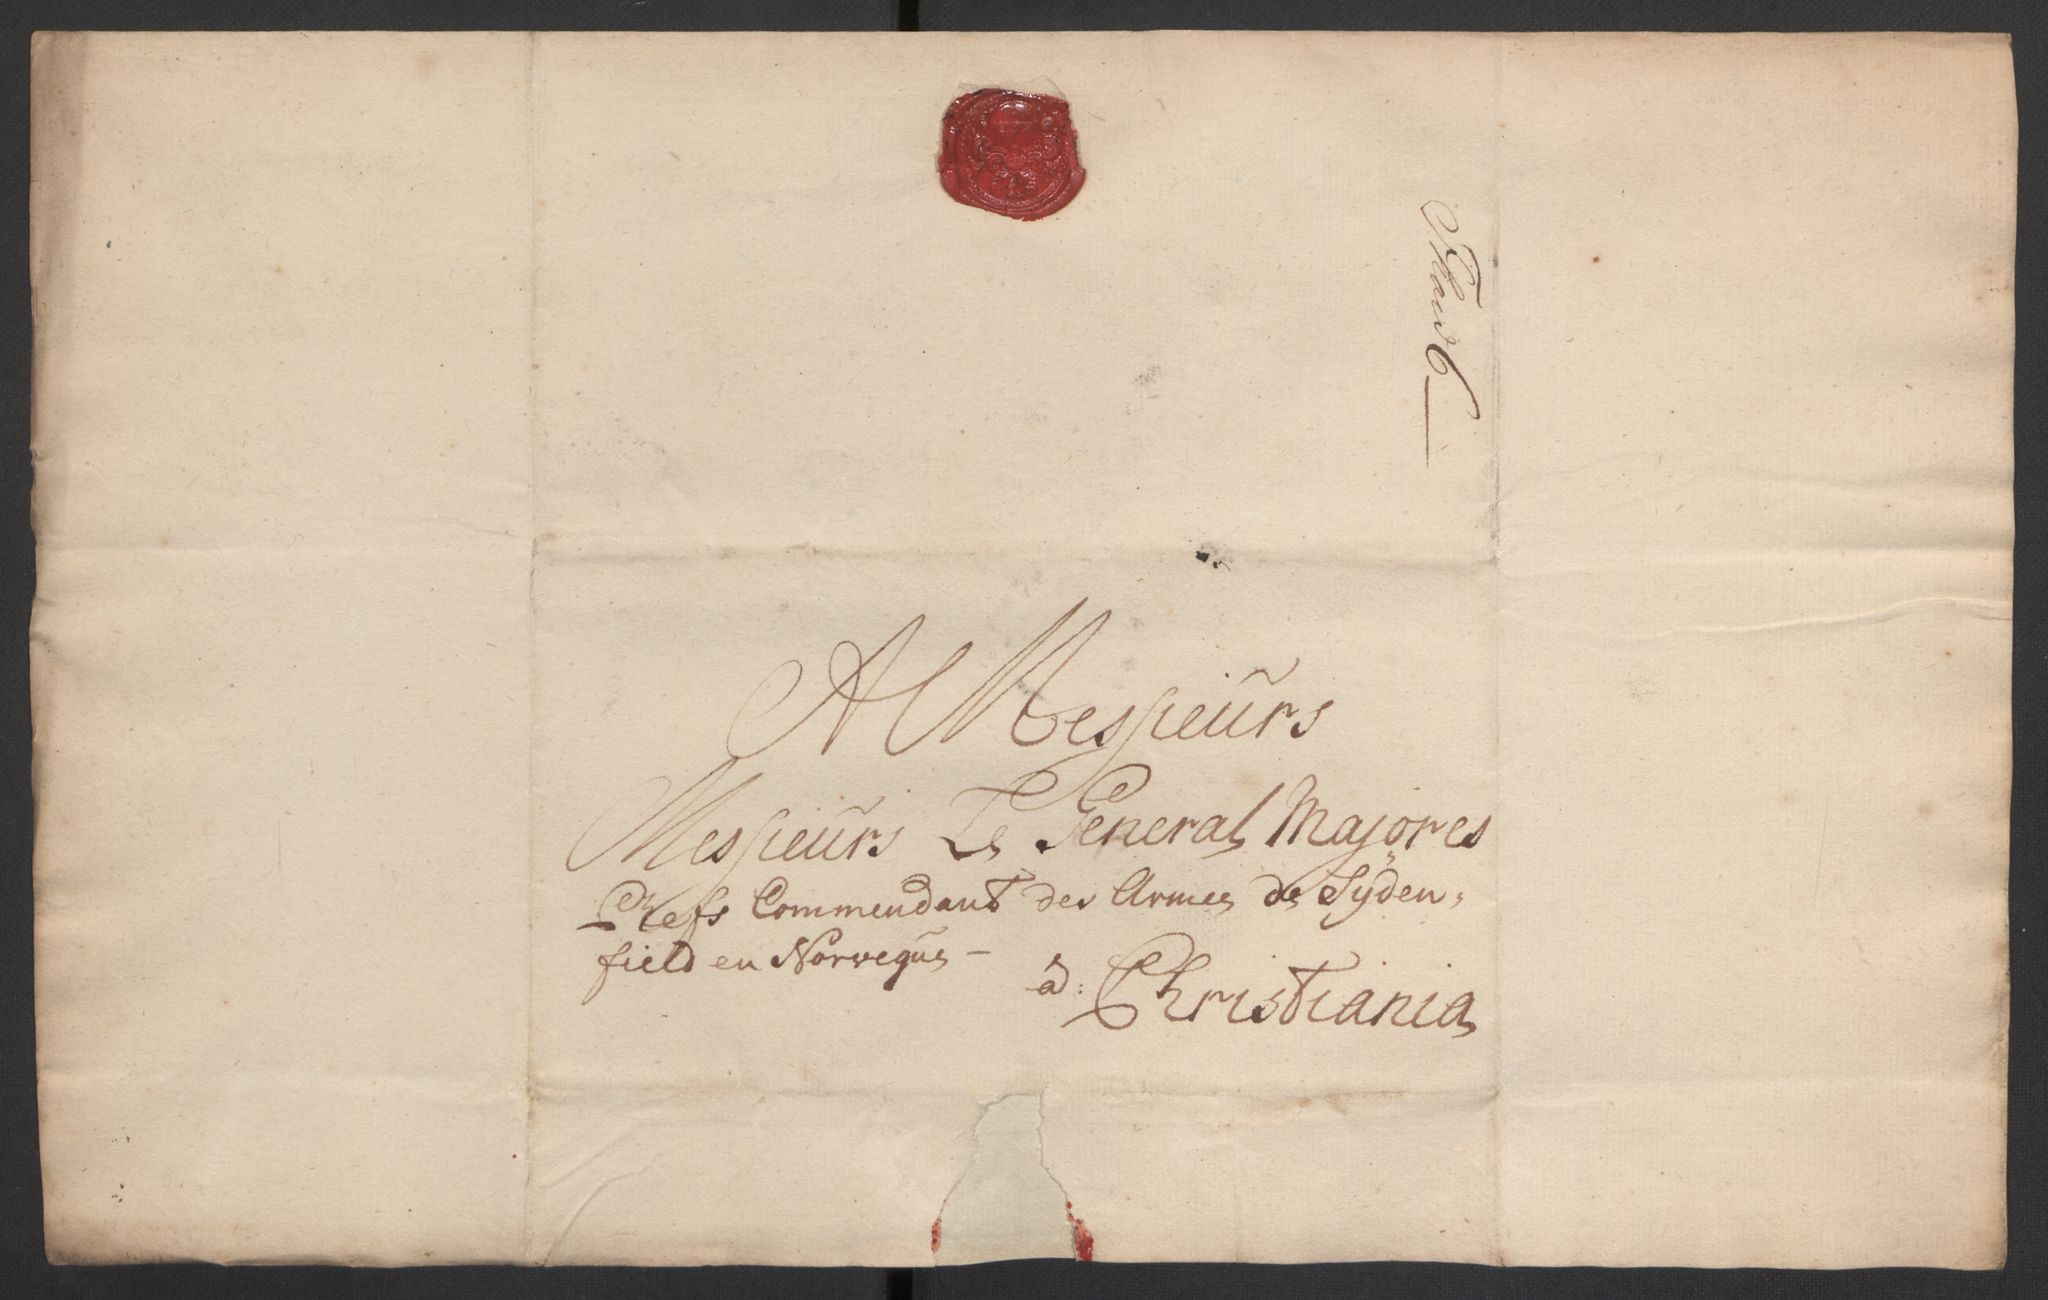 A Messieürs
Messieürs Le General Majores
Chefs Commendant des Armee de Syden,
field en Norvegüe –
à: Christiania